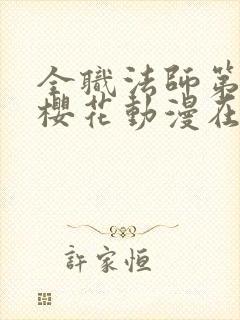 全職法師第
櫻花動漫在
許家恒